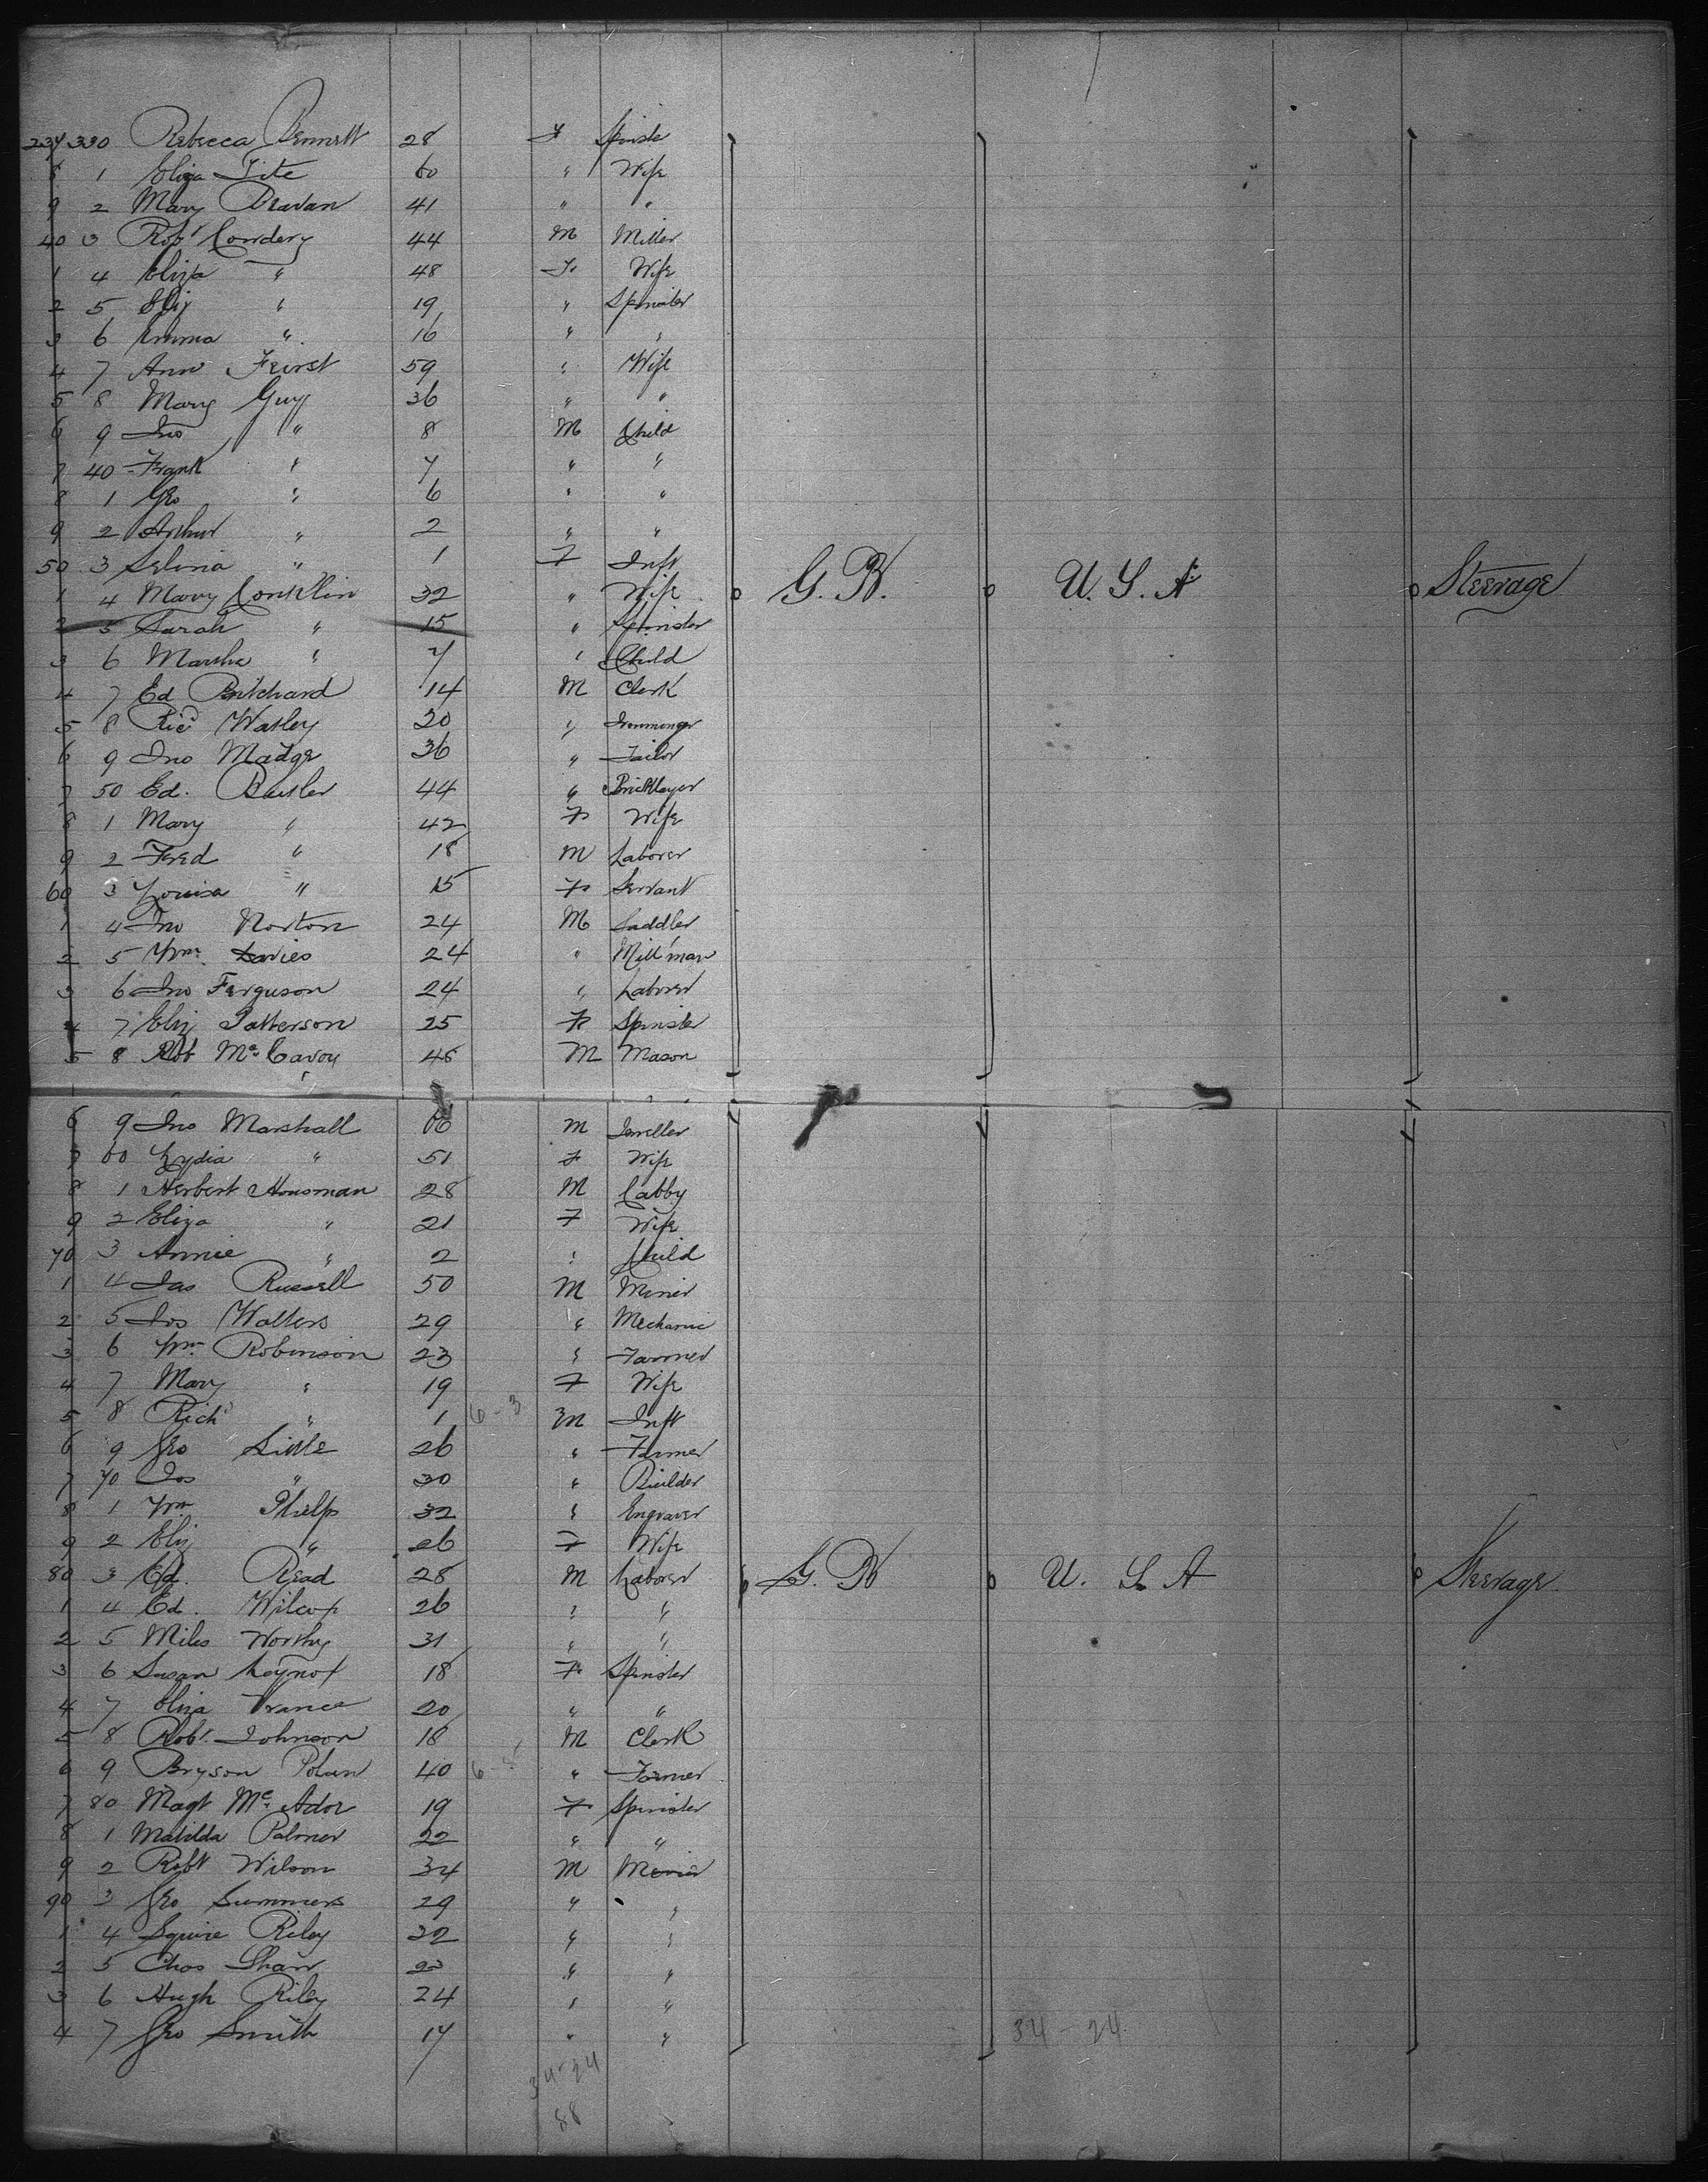 237 330 Rebecca Bennett 28 F Spinster
8 1 Eliza Tite 60 " Wife
9 2 Mary Beavan 41 " "
40 3 Robt Cowdery 44 M Miller
1 4 Eliza " 48 F Wife
2 5 Eliz " 19 " Spinster
3 6 Emma " 16 " "
4 7 Ann Feirst 59 " Wife
5 8 Mary Guy 36 " "
6 9 Jno " 8 M Child
7 40 Frank " 7 " "
8 1 Geo " 6 " "
9 2 Arthur " 2 " "
50 3 Selina " 1 F Inft G. B. U. S. A Steerage
1 4 Mary Conklin 32 " Wife
2 5 Sarah " 15 " Spinster
3 6 Martha " 7 " Child
4 7 Ed Pritchard 14 M Clerk
5 8 Ricd Watley 20 " Ironmonger
6 9 Jno Madge 36 " Tailor
7 50 Ed. Butler 44 " Bricklayer
8 1 Mary " 42 F Wife
9 2 Fred " 18 M Laborer
60 3 Louisa " 15 F Servant
1 4 Jno Norton 24 M Saddler
2 5 Wm. Davies 24 " Mill man
3 6 Jno Ferguson 24 " Laborer
4 7 Eliz Patterson 25 F Spinster
5 8 Rob McCavoy 45 M Mason
6 9 Jno Marshall 66 M Jeweller
7 60 Lydia " 51 F Wife
8 1 Herbert Housman 28 M Cabby
9 2 Eliza " 21 F Wife
70 3 Annie " 2 " Child
1 4 Jas Russell 50 M Miner
2 5 Jos Walters 29 " Mechanic
3 6 Wm. Robinson 23 " Farmer
4 7 Mary " 19 F Wife
5 8 Richd " 1 6-3 M Inft
6 9 Geo Little 26 " Farmer
7 70 Jos " 30 " Builder
8 1 Wm Phelps 32 " Engraver
9 2 Eliz " 26 F Wife
80 3 Ed. Read 28 M Laborer G. B U. S. A Steerage
1 4 Ed. Wilcox 26 " "
2 5 Miles Worthy 31 " "
3 6 Susan 18 F Spinster
4 7 Eliza France 20 " "
5 8 Robt. Johnson 18 M Clerk
6 9 Bryson 40 " Farmer
7 80 Magt McAdor 19 F Spinster
8 1 Matilda Palmer 22 " "
9 2 Robt Wilson 34 M Miner
90 3 Geo Summers 29 " "
1 4 Squire Riley 32 " "
2 5 Chas Shaw 22 " "
3 6 Hugh Riley 24 " "
4 7 Geo Smith 17 " "
34-24
34-24
88